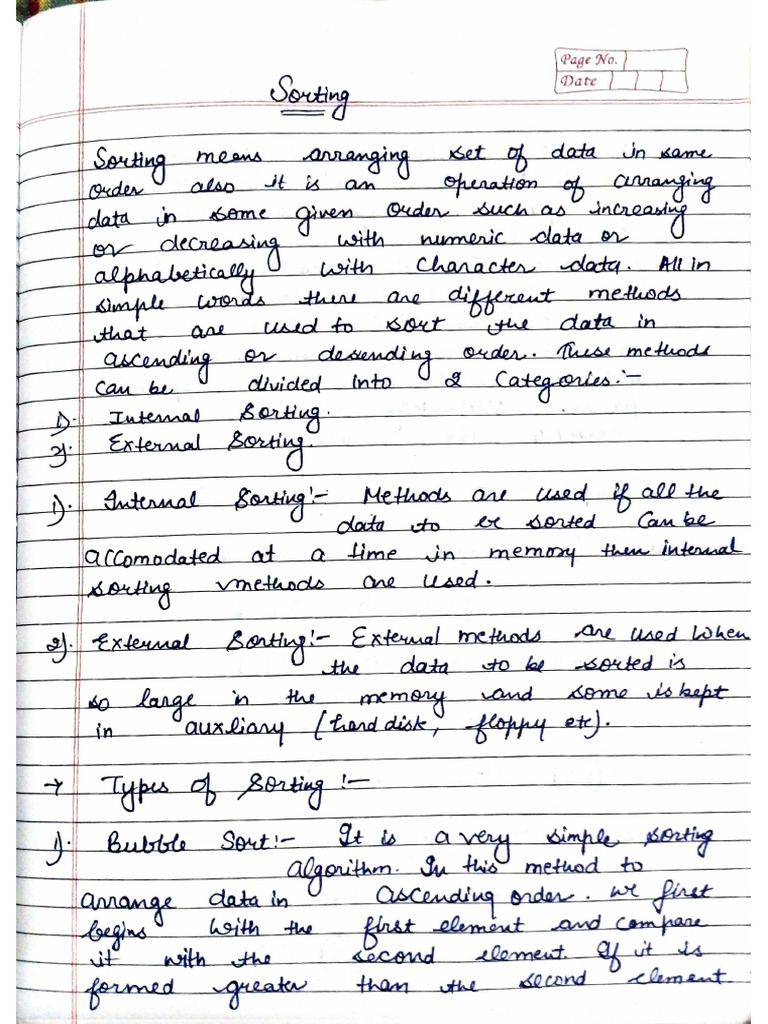 Page No.
Date
Sorting
Sorting means arranging set of data in same
order also it is an operation of arranging
data in some given order such as increasing
or decreasing with numeric data or
alphabetically with character data. All in
simple words there are different methods
that are used to sort the data in
ascending or desending order. These methods
can be divided into 2 Categories:-
1). Internal Sorting.
2). External Sorting.
1). Internal Sorting:- Methods are used if all the
data to be sorted can be
accomodated at a time in memory then internal
sorting methods are used.
2). External Sorting:- External methods are used when
the data to be sorted is
so large in the memory and some is kept
in auxliary (hard disk, floppy etc).
→ Types of Sorting :-
1). Bubble Sort:- It is a very simple sorting
algorithm. In this method to
arrange data in ascending order. we first
begins with the first element and compare
it with the second element. If it is
formed greater than the second element.